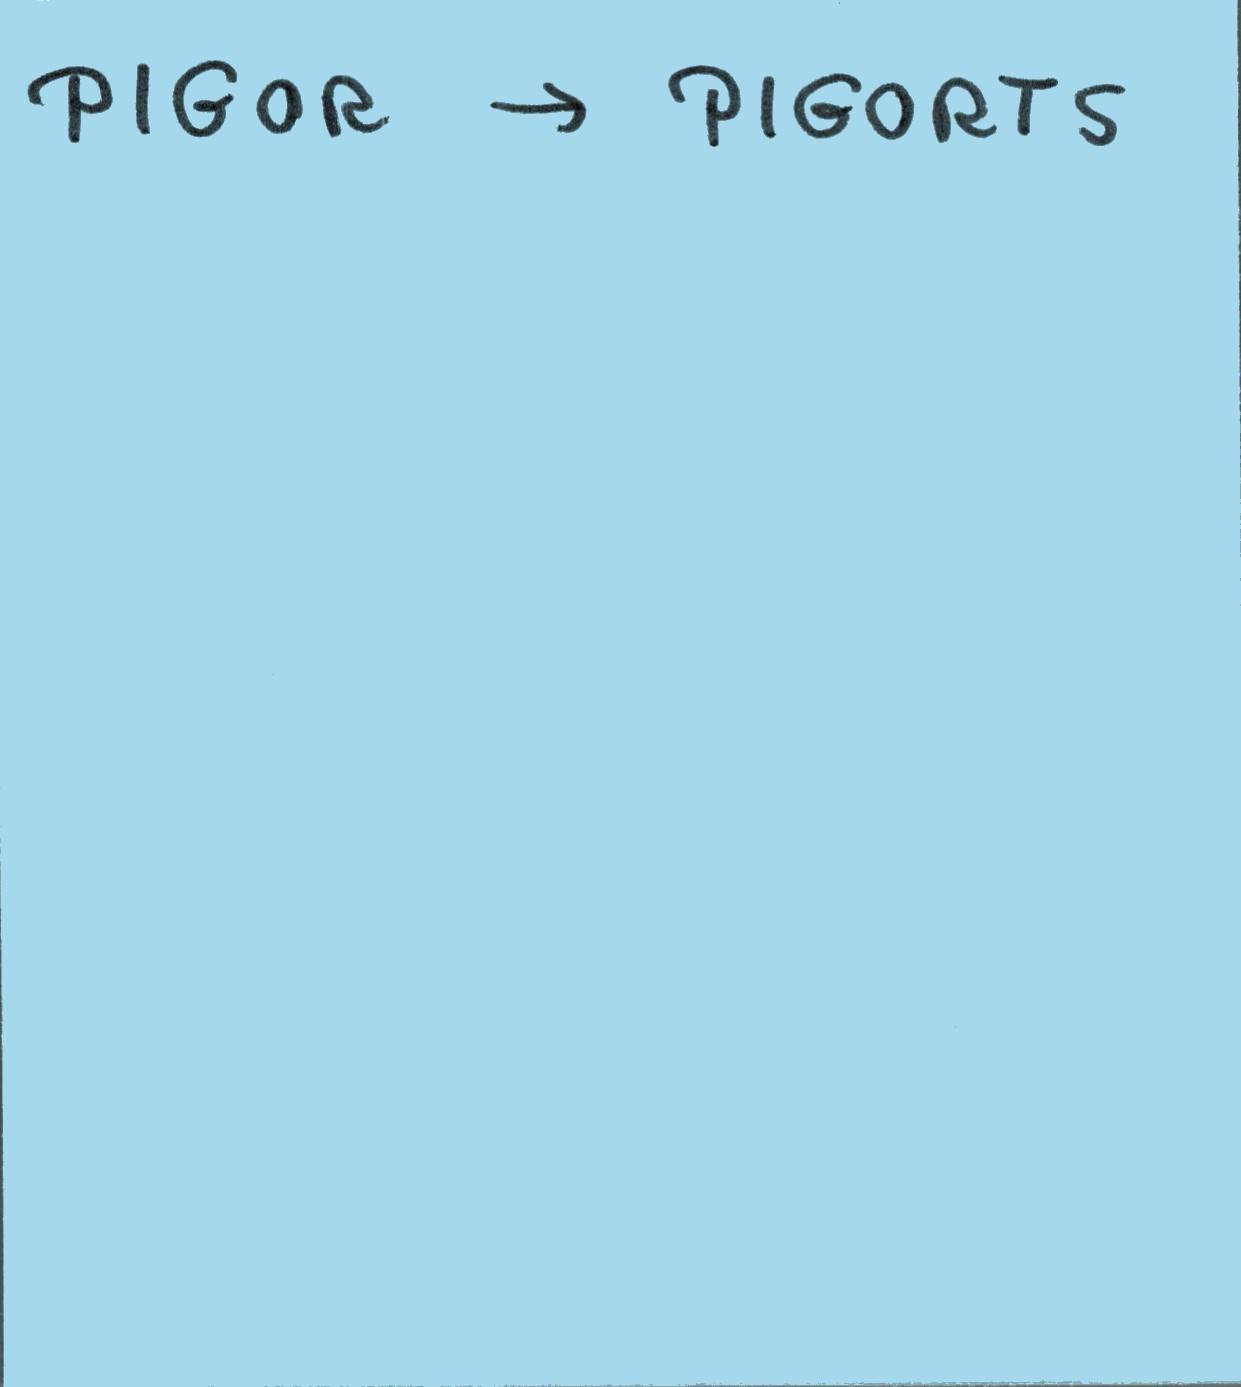 PIGOR → PIGORTS